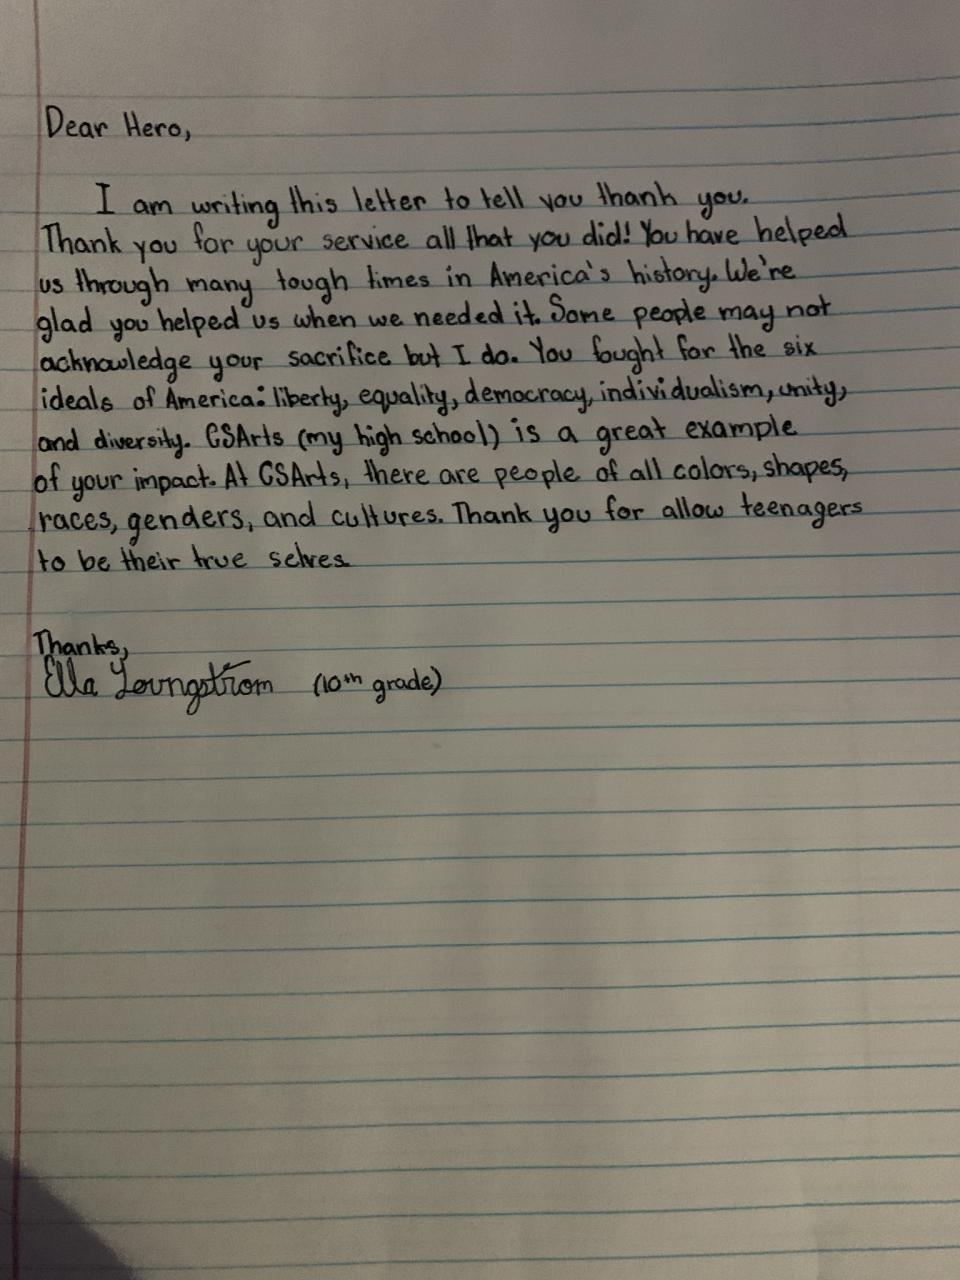 Dear Hero,
I am writing this letter to tell you thank you.
Thank you for your service all that you did! You have helped
us through many tough times in America's history. We're
glad you helped us when we needed it. Some people may not
acknowledge your sacrifice but I do. You fought for the six
ideals of America: liberty, equality, democracy, individualism, unity,
and diversity. CSArts (my high school) is a great example
of your impact. At CSArts, there are people of all colors, shapes,
races, genders, and cultures. Thank you for allow teenagers
to be their true selves.
Thanks,
Ella Youngstrom (10th grade)